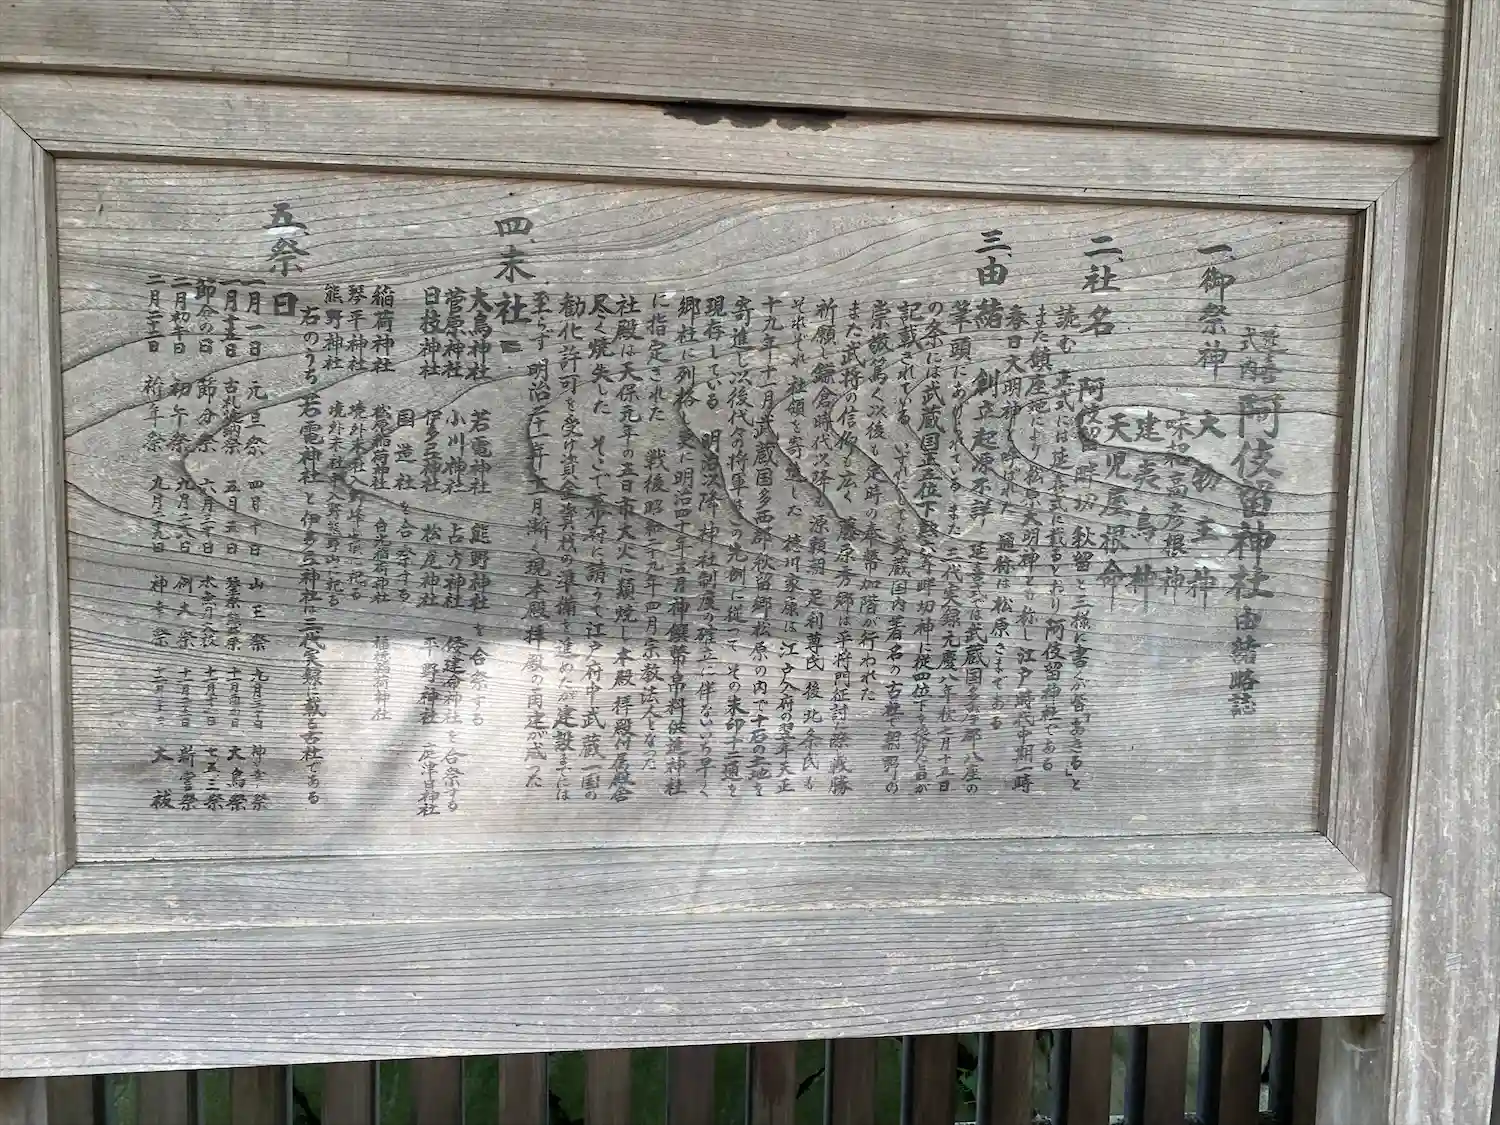 延喜式内 阿伎留神社由緒略誌
一、御祭神 大物主神
味耜高彦根神
建夷鳥神
天児屋根命
二、社名 阿伎留 畔切 秋留と三様に書くが皆「あきる」と
読む 正式には延喜式に載るとおり阿伎留神社である
また鎮座地により松原大明神とも称し江戸時代中期一時
春日大明神とも呼ばれた 通称は松原さまである
三、由緒 創立起源不詳 延喜式では武蔵国多摩郡八座の
筆頭にあげられている また三代実録元慶八年秋七月十五日
の条には武蔵国正五位下勲六等畔切神に従四位下を授けた旨が
記載されている いずれにしても武蔵国内著名の古社で朝野の
崇敬篤く以後も定時の奉幣加階が行われた
また武将の信仰も広く 藤原秀郷は平将門征討の際に戦勝
祈願し鎌倉時代以降も源頼朝 足利尊氏 後北条氏も
それぞれ社領を寄進した 徳川家康は江戸入府の翌年天正
十九年十一月武蔵国多西郡秋留郷松原の内で十石の土地を
寄進し以後代々の将軍もこの先例に従って その朱印十二通を
現存している 明治以降 神社制度の確立に伴ないいち早く
郷社に列格 更に明治四十年五月神饌幣帛料供進神社
に指定された 戦後昭和二十九年四月宗教法人となった
社殿は天保元年の五日市大火に類焼し本殿拝殿付属殿舎
尽く焼失した そこで 寺社に請うて江戸府中武蔵一国の
勧化許可を受け資金資材の準備を進めたが建設までには
至らず 明治二十一年十一月漸く現本殿 拝殿の再建が成った
四、末社 大鳥神社 若電神社 熊野神社 を合祭する
菅原神社 小川神社 占方神社 倭建命神社 を合祭する
日枝神社 伊多弖神社 松尾神社 平野神社 唐津日神社
国造社 を合祭する
稲荷神社 松尾稲荷神社 白光稲荷神社 福徳稲荷神社
琴平神社 境外末社
熊野神社 境外末社
右のうち若電神社と伊多弖神社は三代実録に載る古社である
五、祭日
一月一日 元旦祭 四月十日 山王祭 九月三十日 神幸祭
一月十五日 古札焼納祭 五月五日 大鳥祭
節分の日 節分祭 六月三十日 水無月大祓 七五三祭
二月初午日 初午祭 九月二八日 例大祭 十一月二十三日 新嘗祭
二月二十三日 祈年祭 九月二九日 神幸祭 大祓